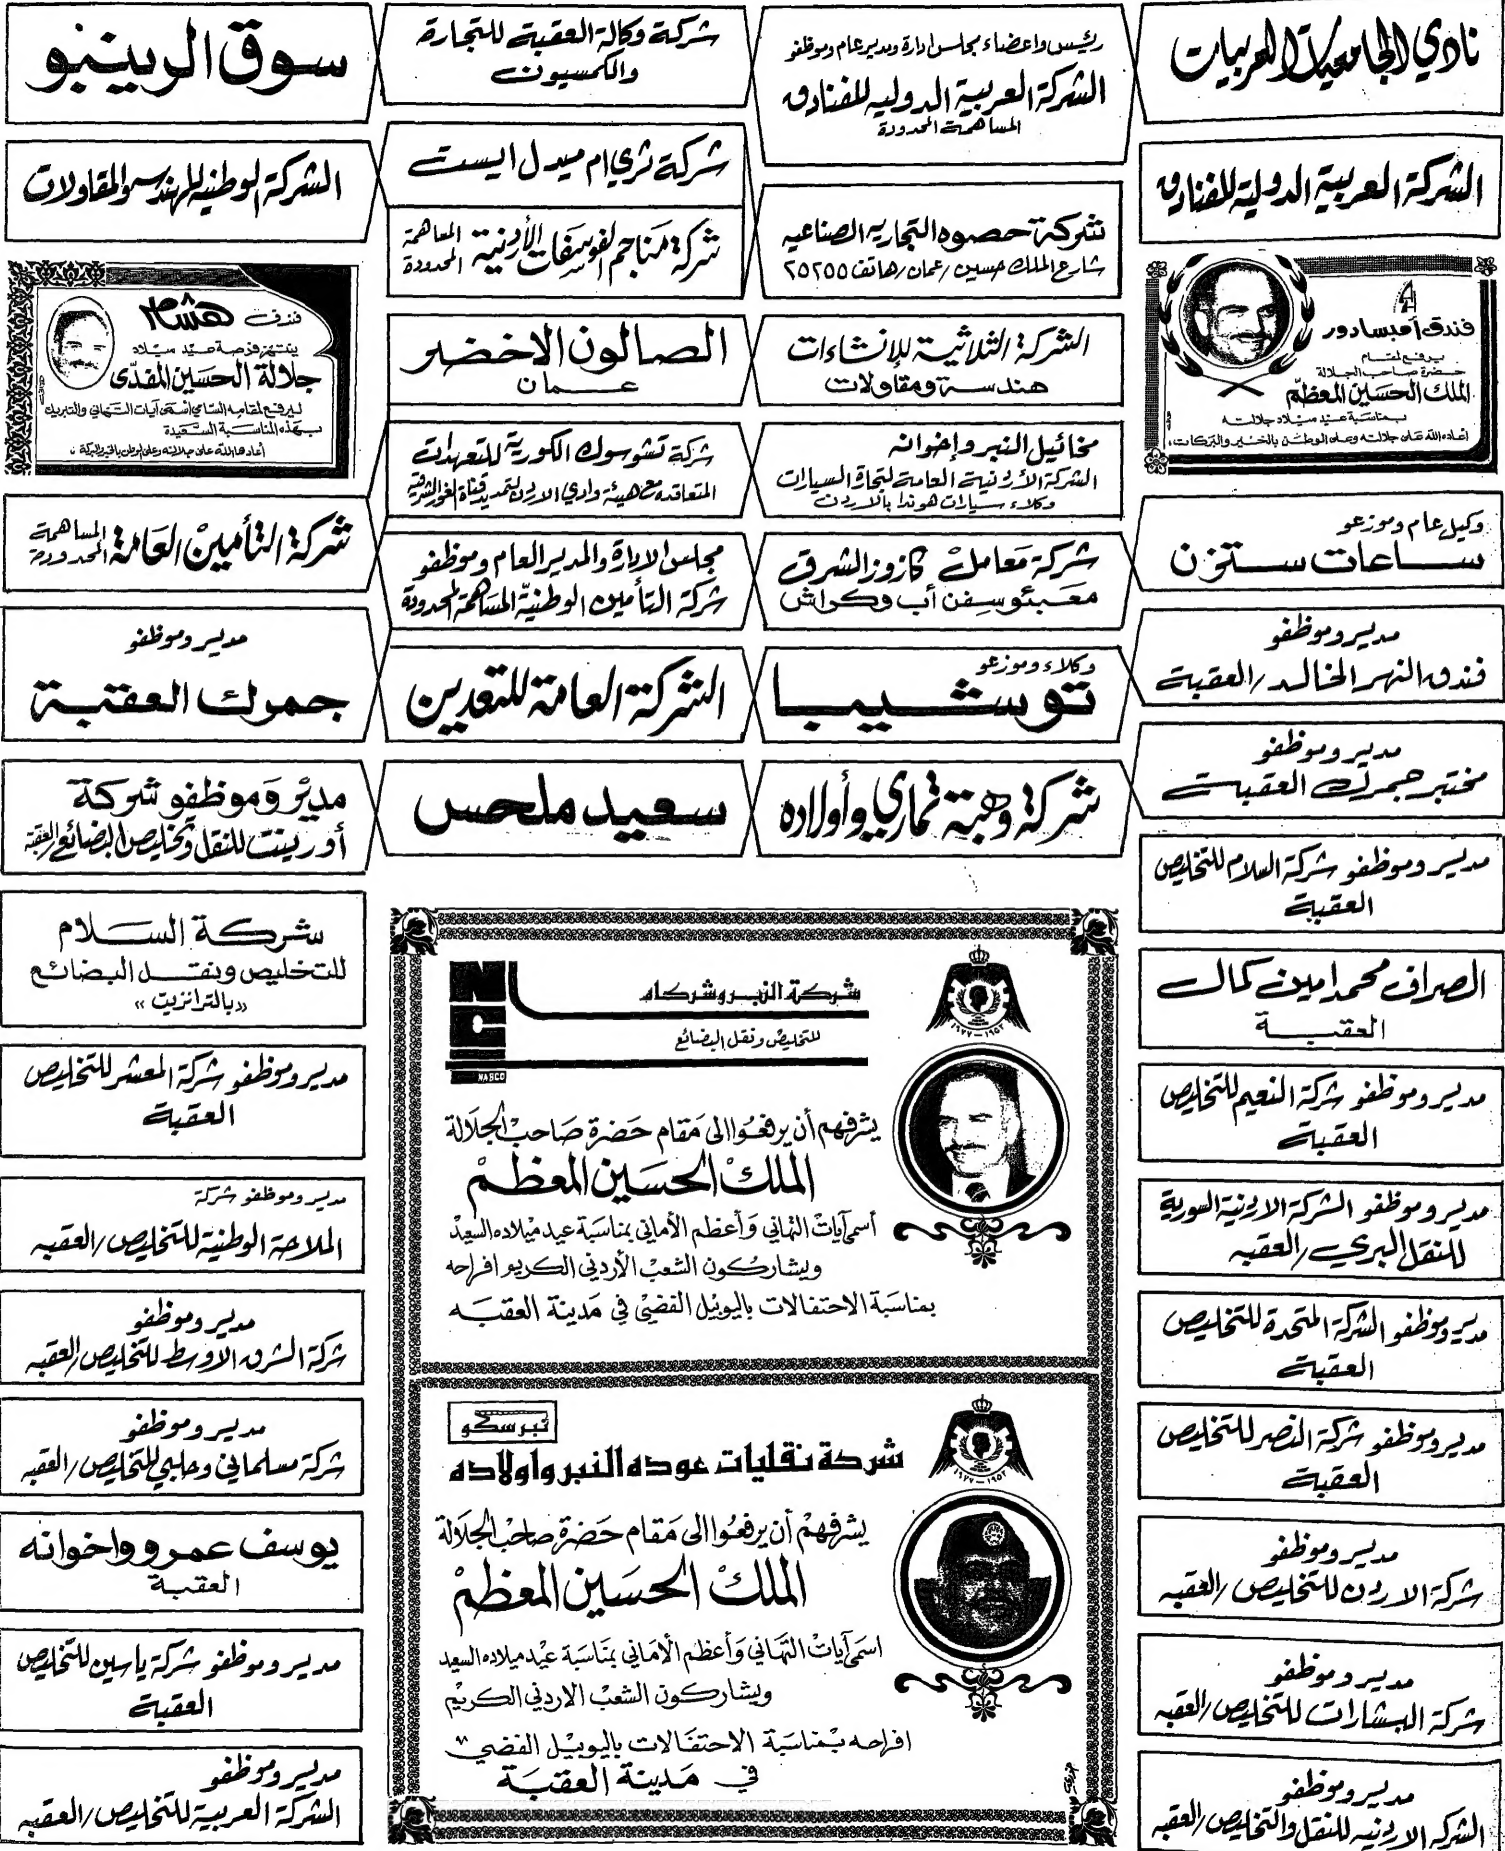 نادي الجامعيات العربيات
الشركة العربية الدولية للفنادق
فندق أمبسادور
يرفع لمقام
حضرة صاحب الجلالة
الملك الحسين المعظم
بمناسبة عيد ميلاد جلالته
أعاده الله على جلالته وعلى الوطن بالخير والبركات
وكيل عام وموزعو
ساعات ستزن
مدير وموظفو
فندق النهر الخالد/العقبة
مدير وموظفو
مختبر جمرك العقبة
مدير وموظفو شركة السلام للتخليص
العقبة
الصراف محمد امين كمال
العقبة
مدير وموظفو شركة النعيم للتخليص
العقبة
مدير وموظفو الشركة الاردنية السورية
للنقل البري/العقبه
مدير وموظفو الشركة المتحدة للتخليص
العقبة
مدير وموظفو شركة النصر للتخليص
العقبة
مدير وموظفو
شركة الاردن للتخليص/العقبه
مدير وموظفو
شركة البشارات للتخليص/العقبه
مدير وموظفو
الشركه الاردنيه للنقل والتخليص/العقبه
رئيس واعضاء مجلس ادارة ومدير عام وموظفو
الشركة العربية الدولية للفنادق
المساهمة المحدودة
شركة حصوه التجاريه الصناعيه
شارع الملك حسين/عمان/هاتف ٢٥٢٥٥
الشركة الثلاثية للإنشاءات
هندسة ومقاولات
مخائيل النبر وإخوانه
الشركة الأردنية العامة لتجارة السيارات
وكلاء سيارات هوندا بالاردن
شركة معامل كازوز الشرق
معبئو سفن أب وكراش
وكلاء وموزعو
توشيبا
شركة وهبة تماري وأولاده
شركة وكالة العقبة للتجارة
والكمسيون
شركة ثري ام ميدل ايست
شركة مناجم الفوسفات الأردنية المساهمة المحدودة
الصالون الاخضر
عمان
شركة تشوسوك الكورية للتعهدات
المتعاقده مع هيئة وادي الاردن لتمديد قناة الغور الشرقية
مجلس الادارة والمدير العام وموظفو
شركة التأمين الوطنية المساهمة المحدودة
الشركة العامة للتعدين
سعيد ملحس
سوق الرينبو
الشركة الوطنيه للهندسه والمقاولات
فندق هشام
ينتهز فرصة عيد ميلاد
جلالة الحسين المفدى
ليرفع لمقامه السامي اسمى آيات التهاني والتبريك
بهذه المناسبة السعيدة
أعادها الله على جلالته وعلى الوطن بالخير والبركة
شركة التأمين العامة المساهمة المحدودة
مدير وموظفو
جمرك العقبة
مدير وموظفو شركة
أورينت للنقل وتخليص البضائع/العقبة
شركة السلام
للتخليص ونقل البضائع
«بالترانزيت»
مدير وموظفو شركة المعشر للتخليص
العقبة
مدير وموظفو شركة
الملاحة الوطنية للتخليص/العقبه
مدير وموظفو
شركة الشرق الاوسط للتخليص/العقبه
مدير وموظفو
شركة مسلماني وحلبي للتخليص/العقبه
يوسف عمرو واخوانه
العقبة
مدير وموظفو شركة ياسين للتخليص
العقبة
مدير وموظفو
الشركة العربية للتخليص/العقبه
شركة النبر وشركاه
للتخليص ونقل البضائع
NASCO
١٩٥٢ - ١٩٧٧
يشرفهم أن يرفعوا الى مقام حضرة صاحب الجلالة
الملك الحسين المعظم
أسمى آيات التهاني وأعظم الأماني بمناسبة عيد ميلاده السعيد
ويشاركون الشعب الأردني الكريم افراحه
بمناسبة الاحتفالات باليوبيل الفضي في مدينة العقبه
نبرسكو
شركة نقليات عوده النبر واولاده
١٩٥٢ - ١٩٧٧
يشرفهم أن يرفعوا الى مقام حضرة صاحب الجلالة
الملك الحسين المعظم
اسمى آيات التهاني وأعظم الأماني بمناسبة عيد ميلاده السعيد
ويشاركون الشعب الاردني الكريم
افراحه بمناسبة الاحتفالات باليوبيل الفضي
في مدينة العقبة